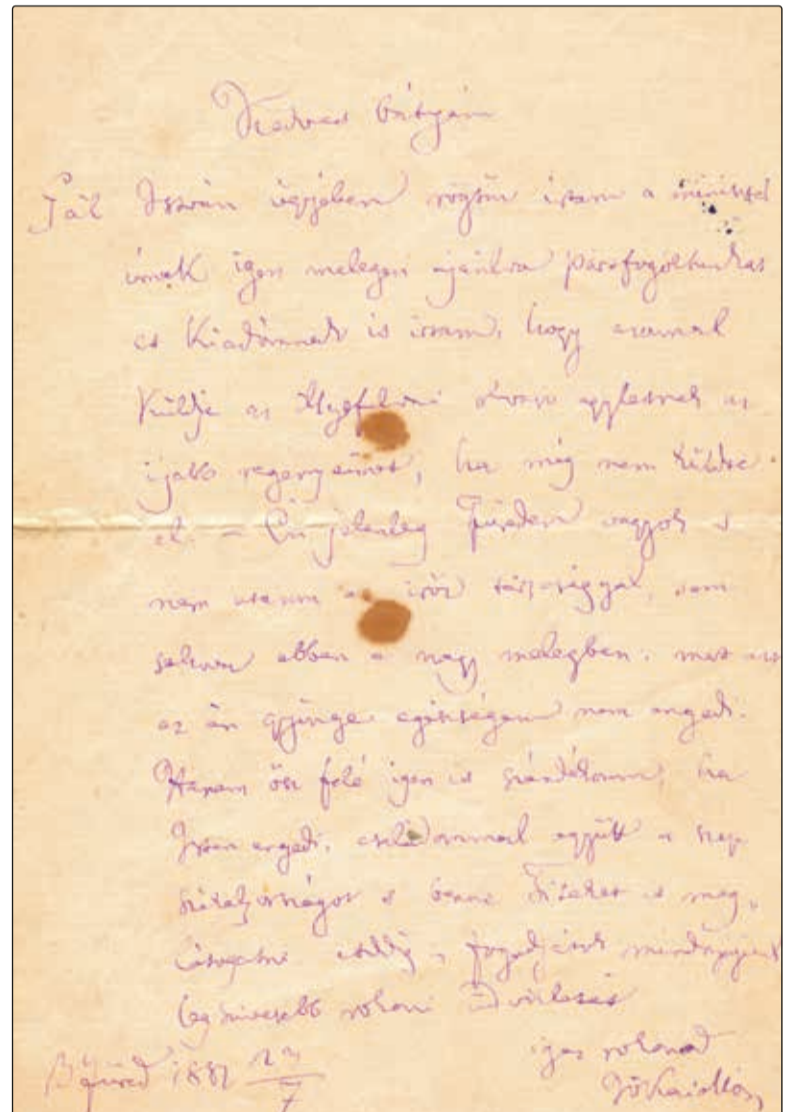 Kedves Bátyám
Pál István ügyében rögtön írtam a miniszter
úrnak igen melegen ajánlva pártfogoltunkat
és Kiadómnak is írtam, hogy azonnal
küldje az olvasó egyletnek az
újabb regényeimet, ha még nem küldte
el. – Én jelenleg Füreden vagyok s
nem utazom az író társasággal, sem
ebben a nagy melegben. mert azt
az én gyönge egészségem nem engedi.
Hanem ősz felé igen is szándékom, ha
Isten engedi, családommal együtt a szép
Székelyországot s benne Titeket is meg„
látogatni addig is fogadjátok mindnyájan
legszivesebb rokoni Üdvözletét
igaz rokonod
Bfüred 1882 23/7
Jókai Mór